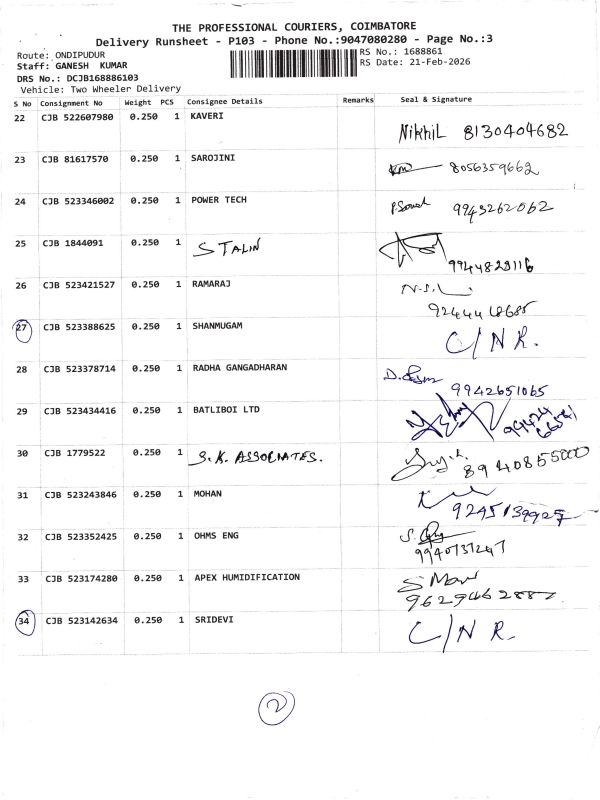 THE PROFESSIONAL COURIERS, COIMBATORE
Delivery Runsheet - P103 - Phone No.:9047080280 - Page No.:3
Route: ONDIPUDUR
RS No.: 1688861
Staff: GANESH KUMAR
RS Date: 21-Feb-2026
DRS No.: DCJB168886103
Vehicle: Two Wheeler Delivery
S No Consignment No Weight PCS Consignee Details Remarks Seal & Signature
22 CJB 522607980 0.250 1 KAVERI
Nikhil 8130404682
23 CJB 81617570 0.250 1 SAROJINI
8056359662
24 CJB 523346002 0.250 1 POWER TECH
9943262062
25 CJB 1844091 0.250 1 STALIN
9944823116
26 CJB 523421527 0.250 1 RAMARAJ
27 CJB 523388625 0.250 1 SHANMUGAM
C/NR.
28 CJB 523378714 0.250 1 RADHA GANGADHARAN
9942651065
29 CJB 523434416 0.250 1 BATLIBOI LTD
30 CJB 1779522 0.250 1 S.K. ASSOCIATES.
8940855000
31 CJB 523243846 0.250 1 MOHAN
32 CJB 523352425 0.250 1 OHMS ENG
33 CJB 523174280 0.250 1 APEX HUMIDIFICATION
34 CJB 523142634 0.250 1 SRIDEVI
C/NR.
2